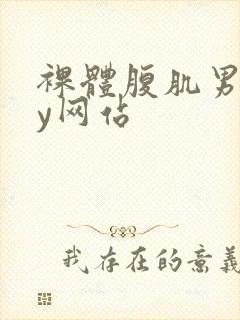 裸體腹肌男
y网佔
我存在的意義